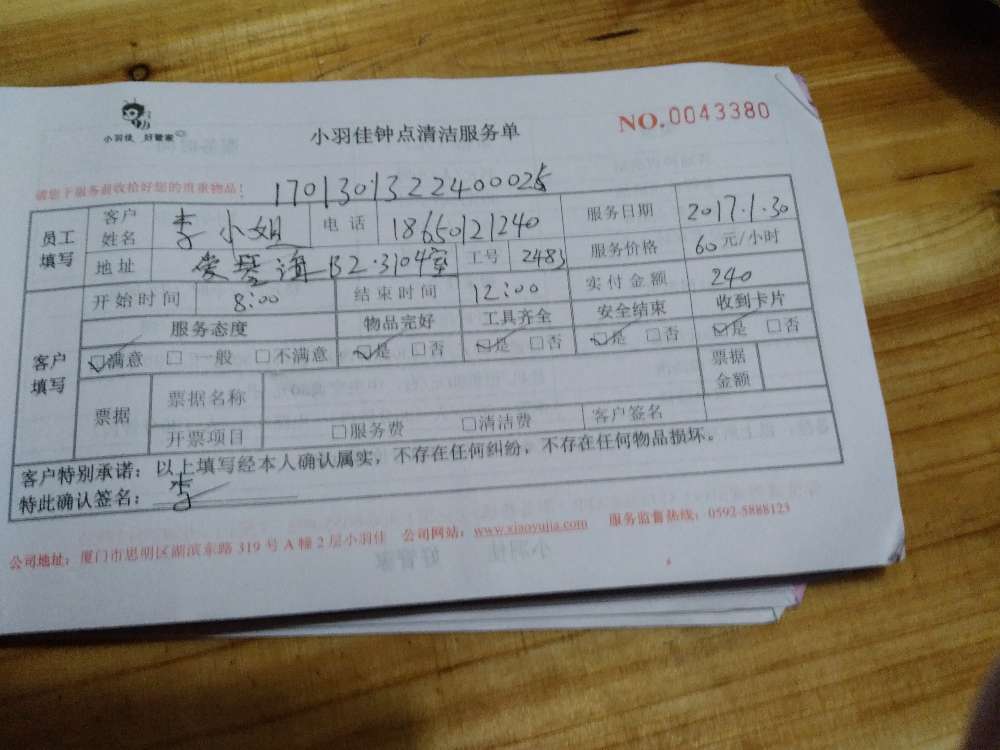 小羽佳 好管家
小羽佳钟点清洁服务单
NO.0043380
请您于服务前收拾好您的贵重物品！
1701301322400025
员工填写 客户姓名 李小姐 电话 18650121240 服务日期 2017.1.30
地址 爱琴海B2.3104室 工号 2483 服务价格 60元/小时
客户填写 开始时间 8:00 结束时间 12:00 实付金额 240
服务态度 物品完好 工具齐全 安全结束 收到卡片
☑满意 □一般 □不满意 ☑是 □否 ☑是 □否 ☑是 □否 ☑是 □否
票据 票据名称 票据金额
开票项目 □服务费 □清洁费 客户签名
客户特别承诺：以上填写经本人确认属实，不存在任何纠纷，不存在任何物品损坏。
特此确认签名：李
公司地址：厦门市思明区湖滨东路319号A幢2层小羽佳 公司网站：www.xiaoyujia.com 服务监督热线：0592-5888123